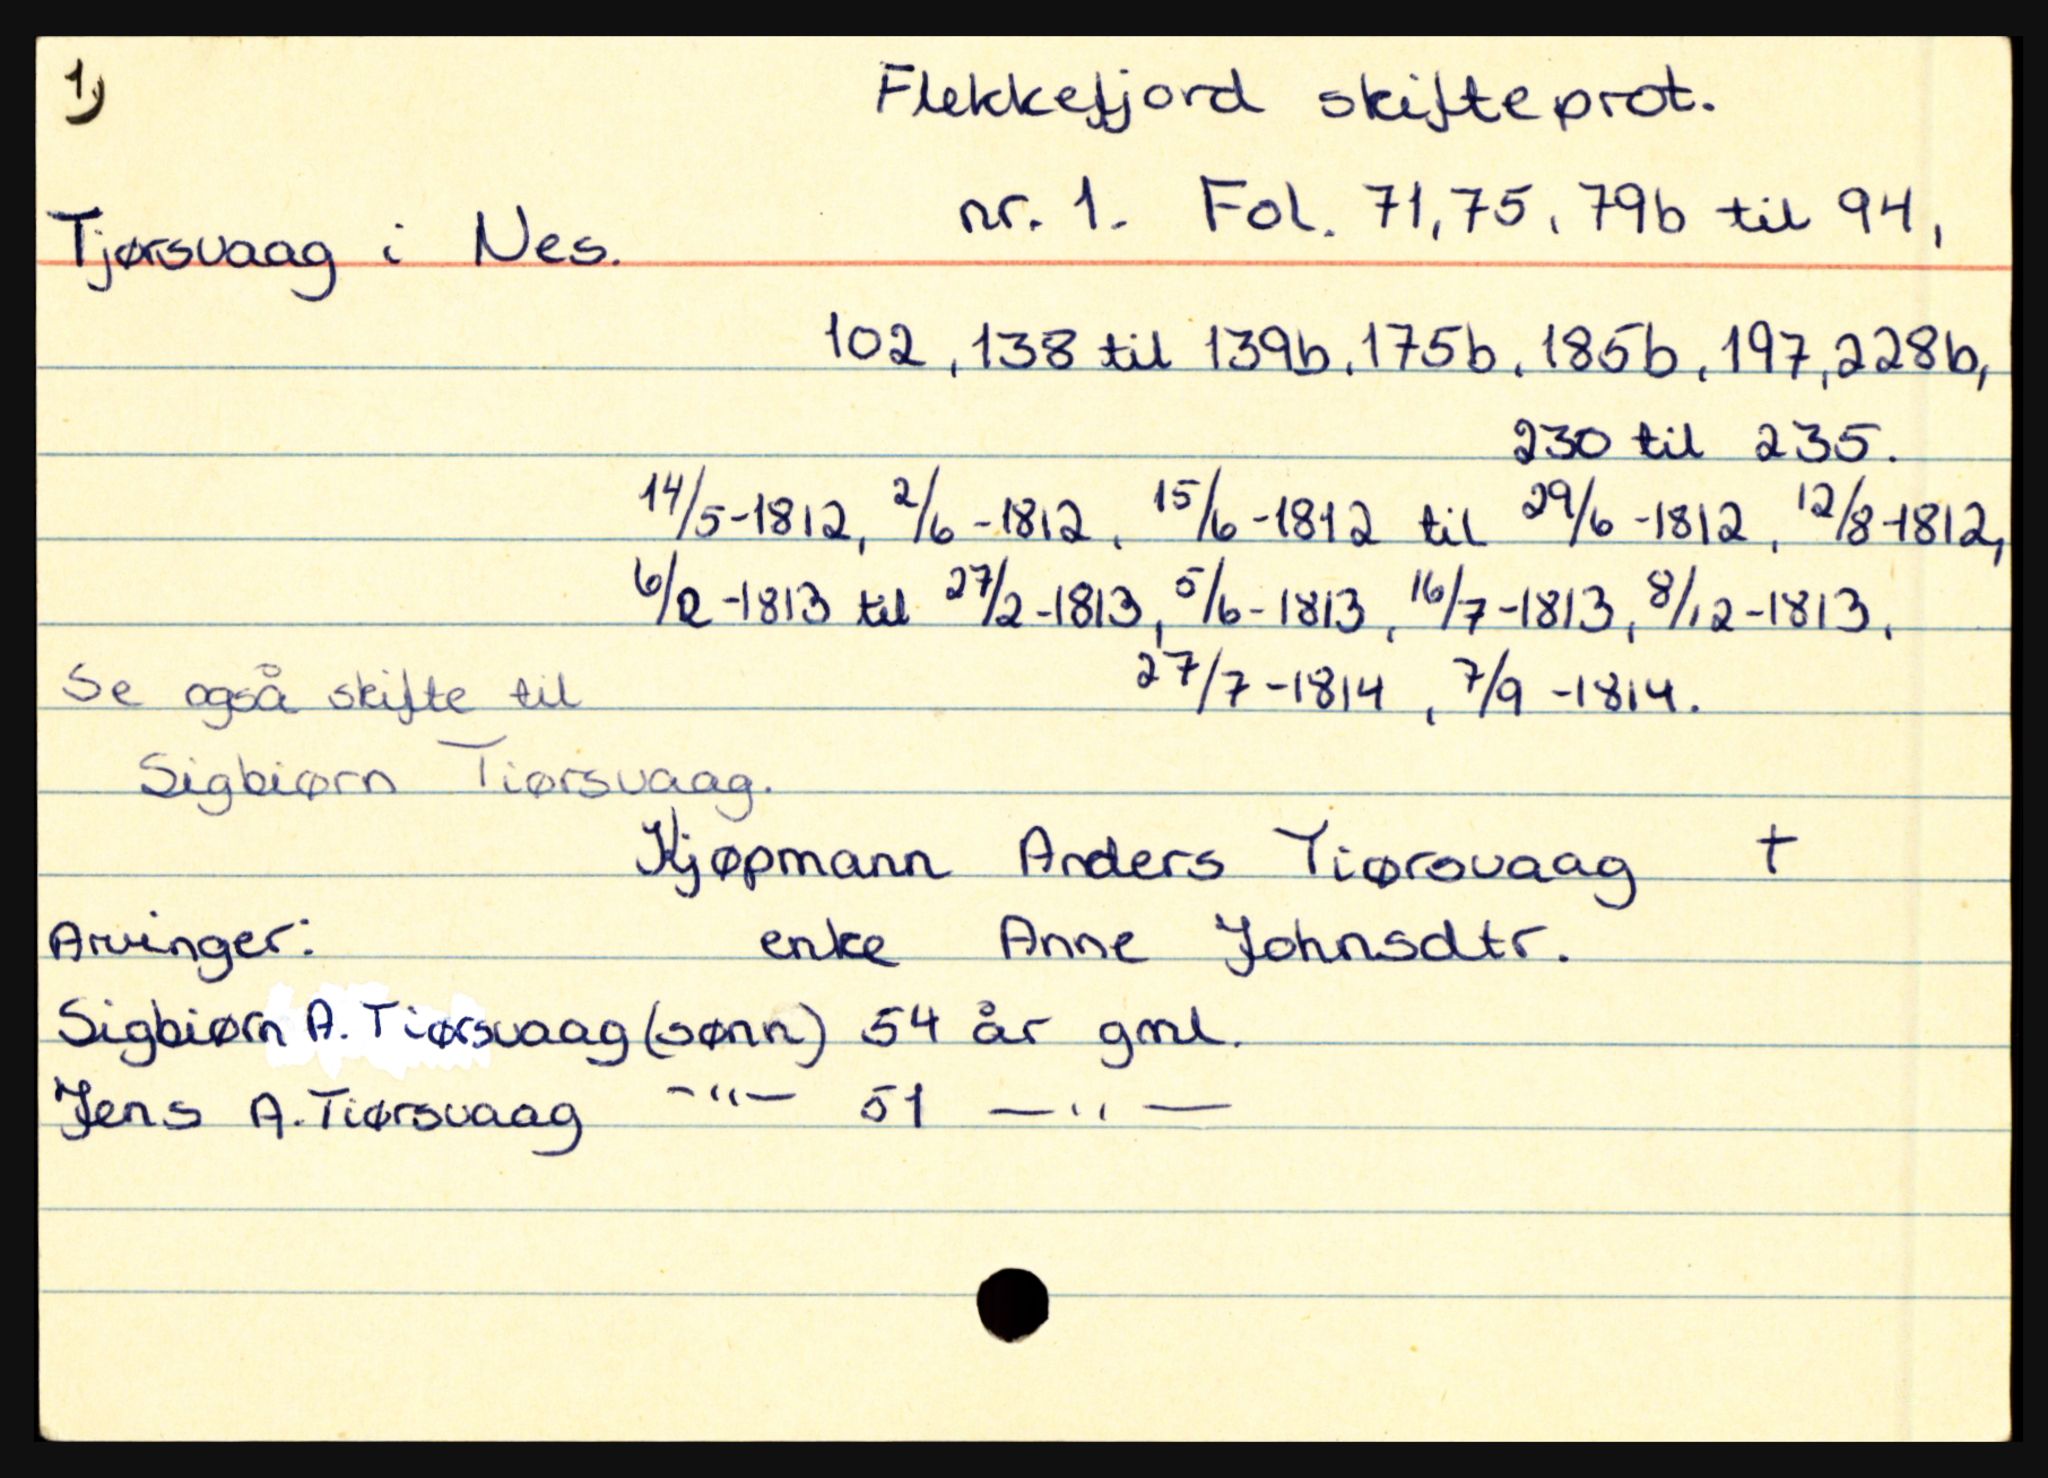 1)
Flekkefjord skifteprot.
Tjørsvaag i Nes.
nr. 1. Fol. 71, 75, 79b til 94,
102, 138 til 139b, 175b, 185b, 197, 228b,
230 til 235.
14/5-1812, 2/6-1812, 15/6-1812 til 29/6-1812, 12/8-1812,
6/2-1813 til 27/2-1813, 5/6-1813, 16/7-1813, 8/12-1813,
27/7-1814, 7/9-1814.
Se også skifte til
Sigbiørn Tiørsvaag.
Kjøpmann Anders Tiørsvaag †
Arvinger: enke Anne Johnsdtr.
Sigbiørn A. Tiørsvaag (sønn) 54 år gml.
Jens A. Tiørsvaag -"- 51 -"-